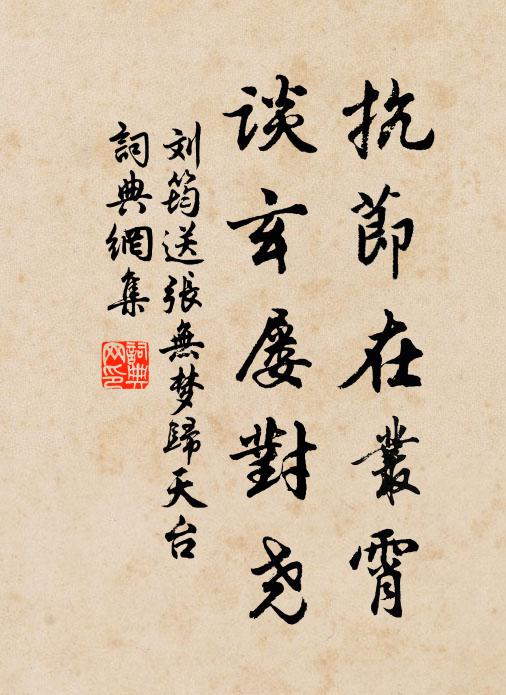 抗節在叢霄
談玄屡對尧
刘筠送張無梦歸天台
詞典網集
詞典网印